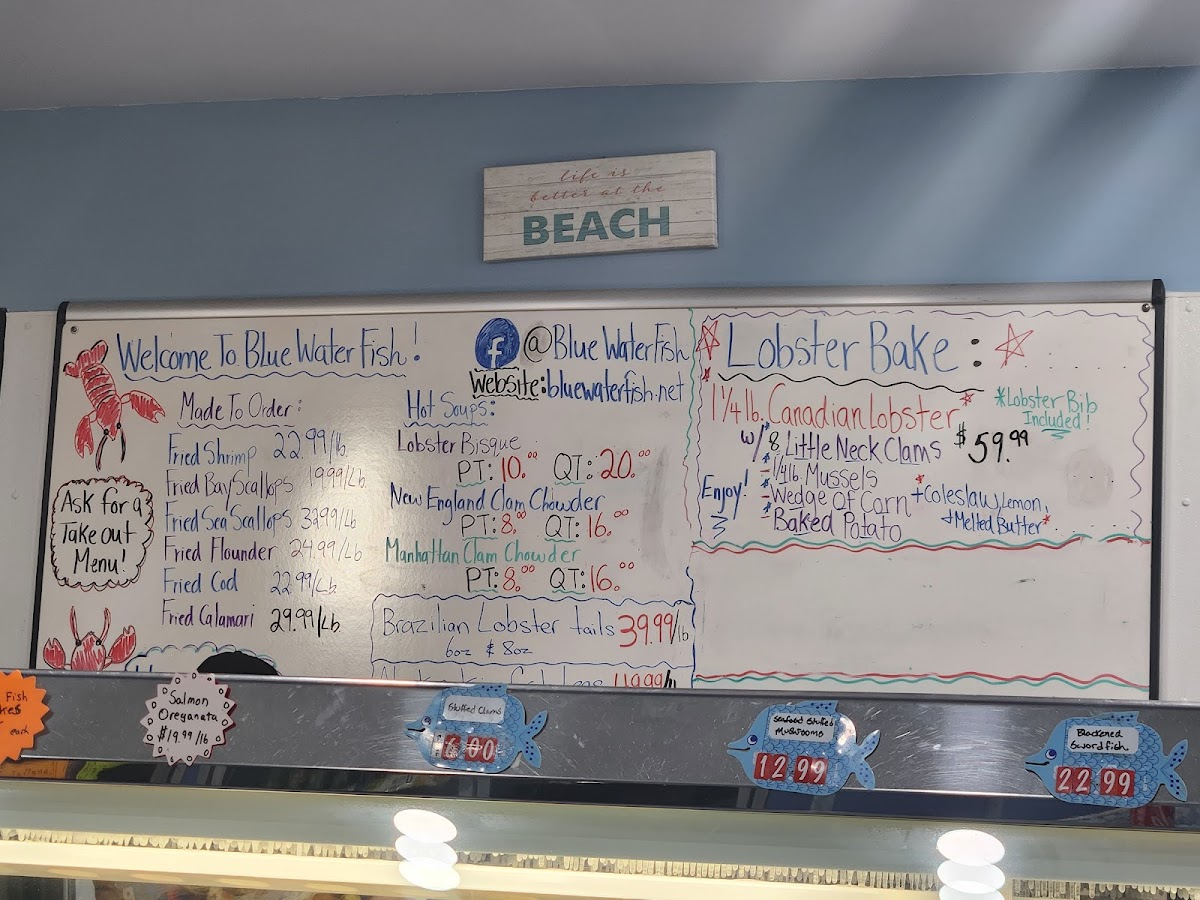 life is
better at the
BEACH
Welcome To Blue Water Fish!
f @Blue Water Fish
Website: bluewaterfish.net
Made To Order:
Fried Shrimp 22.99/lb
Fried Bay Scallops 19.99/Lb
Fried Sea Scallops 32.99/Lb
Fried Flounder 24.99/Lb
Fried Cod 22.99/Lb
Fried Calamari 29.99/Lb
Ask for a
Take out
Menu!
Hot Soups:
Lobster Bisque
PT: 10.00 QT: 20.00
New England Clam Chowder
PT: 8.00 QT: 16.00
Manhattan Clam Chowder
PT: 8.00 QT: 16.00
Brazilian Lobster tails 39.99/lb
6oz & 8oz
Lobster Bake:
1 1/4 lb. Canadian Lobster
*Lobster Bib
Included!
w/ 8 Little Neck Clams $59.99
- 1/4 lb. Mussels
- Wedge Of Corn + Coleslaw, Lemon,
- Baked Potato + Melted Butter*
Enjoy!
Fish
each
Salmon
Oreganata
$19.99/lb
Stuffed Clams
6 00
Seafood Stuffed
Mushrooms
12 99
Blackened
Swordfish
22 99